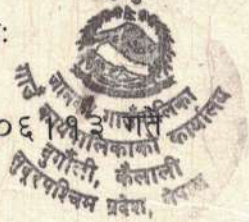 :
०६।१३ गते
जानकी गाउँपालिका
गाउँ कार्यपालिकाको कार्यालय
दुर्गौली, कैलाली
सुदूरपश्चिम प्रदेश, नेपाल